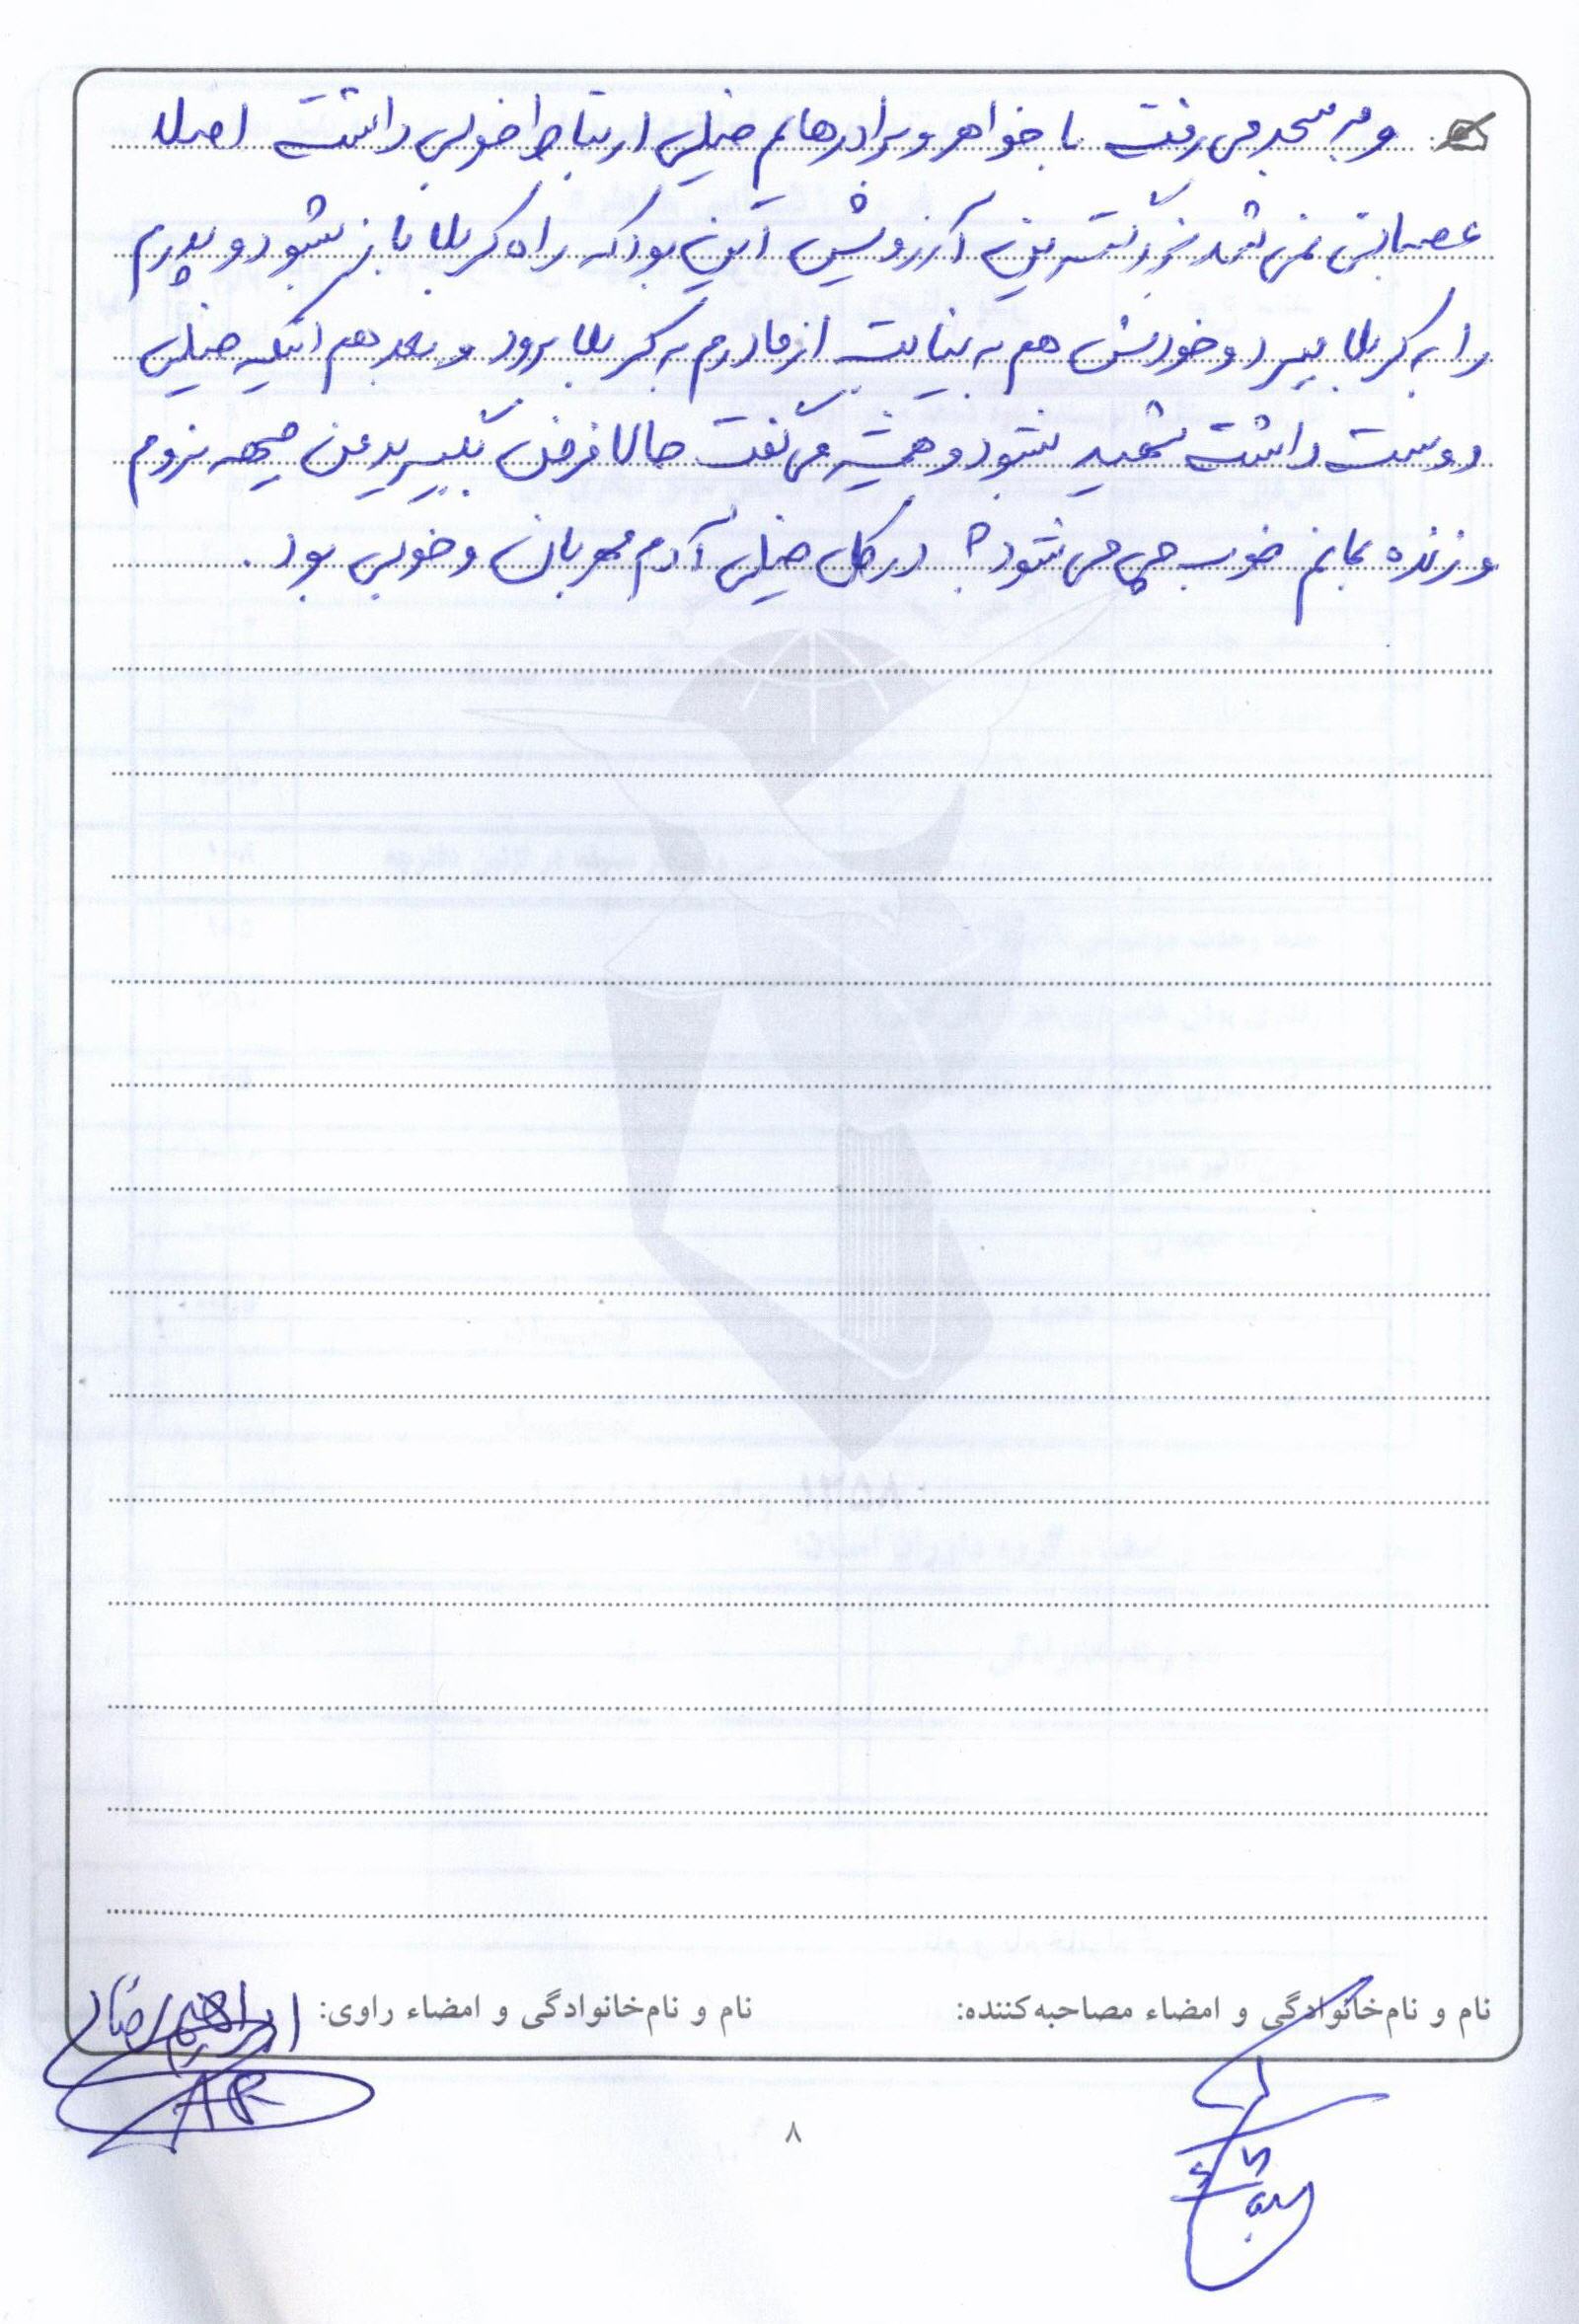 و به مسجد می رفت با خواهر و برادرهایم خیلی ارتباط خوبی داشت اصلا
عصبانی نمی شد بزرگترین آرزویش این بود که راه کربلا باز شود و پدرم
را به کربلا ببرد و خودش هم به نیابت از مادرم به کربلا برود و بعد هم اینکه خیلی
دوست داشت شهید شود و همیشه می گفت حالا فرض بگیرید من جبهه نروم
و زنده بمانم خوب چی می شود؟ در کل خیلی آدم مهربان و خوبی بود.
نام و نام‌خانوادگی و امضاء مصاحبه‌کننده:
نام و نام‌خانوادگی و امضاء راوی: ابراهیم رضا
AR
۸